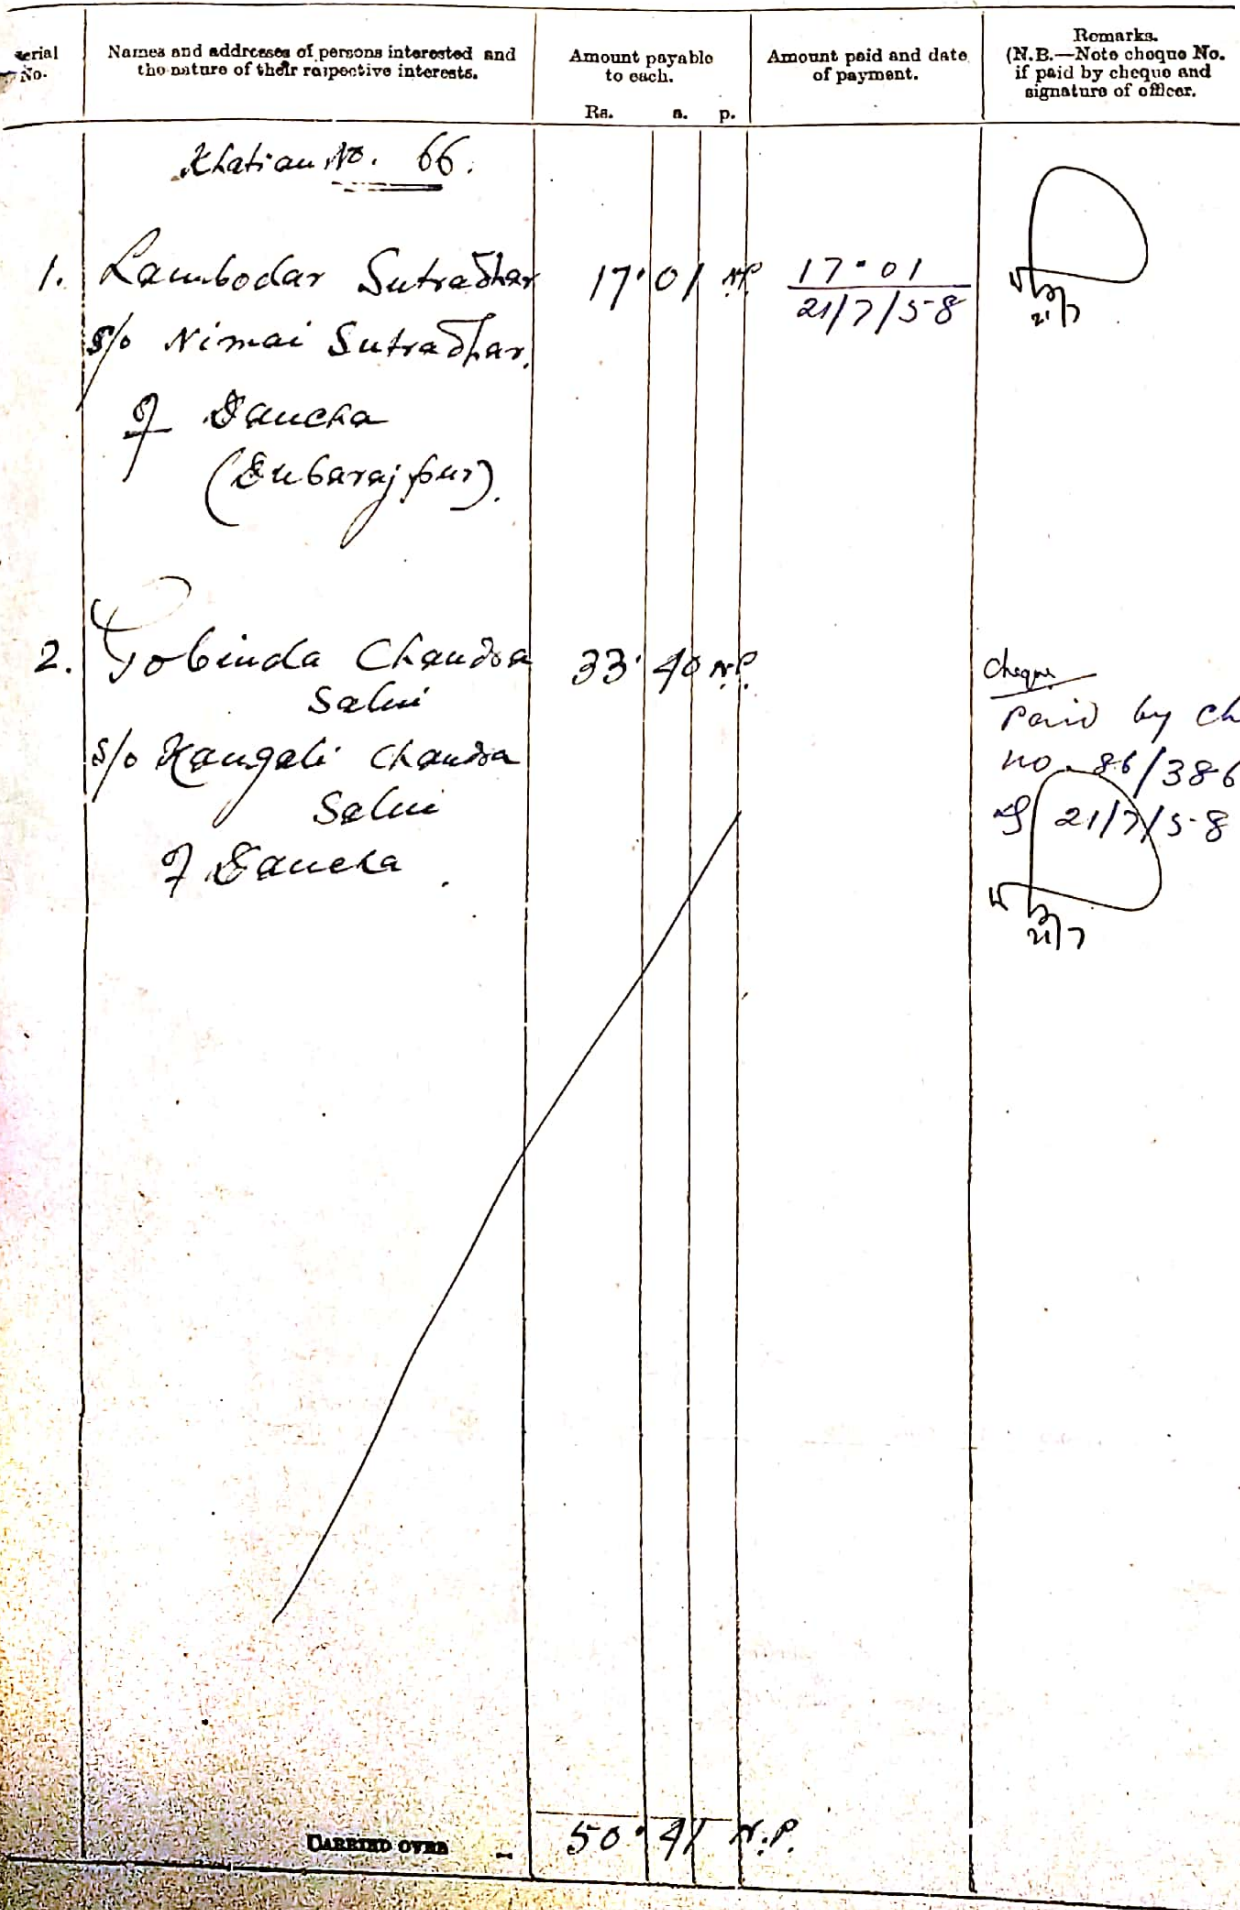 erial
No.
Names and addresses of persons interested and
the nature of their raspective interests.
Amount payable
to each.
Rs. a. p.
Amount paid and date
of payment.
Remarks.
(N.B.—Note cheque No.
if paid by cheque and
signature of officer.
Khatian No. 66.
1. Lambodar Sutradhar 17.01 N.P. 17.01
21/7/58
21/7
S/o Nimai Sutradhar.
of Dancha
(Dubarajpur).
2. Gobinda Chandra 33.40 N.P.
Salui
S/o Kangali Chandra
Salui
of Dancha.
Cheque
Paid by Ch
no. 86/386
21/7/58
21/7
CARRIED OVER - 50.41 N.P.